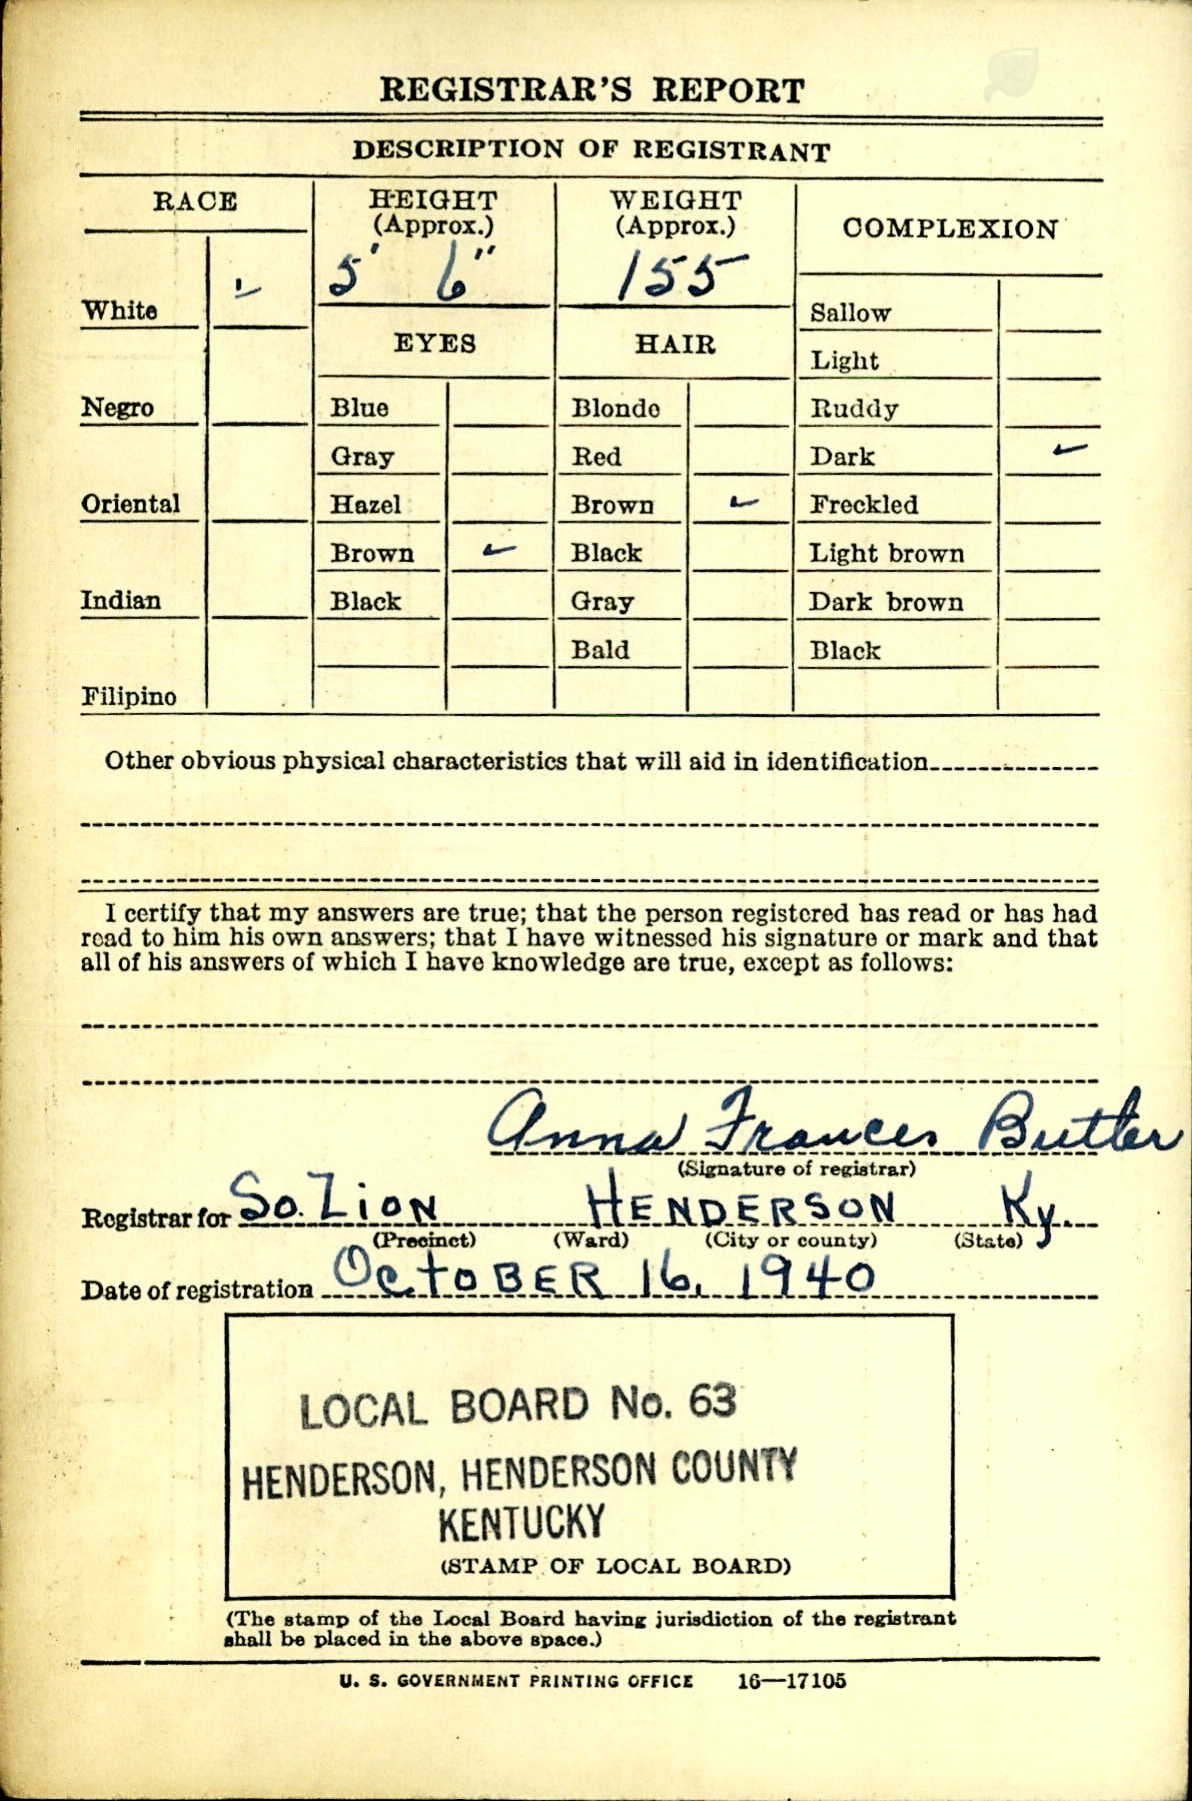 REGISTRAR'S REPORT
DESCRIPTION OF REGISTRANT
RACE
HEIGHT
(Approx.)
WEIGHT
(Approx.)
COMPLEXION
5' 6"
155
White ✓
Sallow
EYES
HAIR
Light
Negro
Blue
Blonde
Ruddy
Gray
Red
Dark ✓
Oriental
Hazel
Brown ✓
Freckled
Brown ✓
Black
Light brown
Indian
Black
Gray
Dark brown
Bald
Black
Filipino
Other obvious physical characteristics that will aid in identification
I certify that my answers are true; that the person registered has read or has had
read to him his own answers; that I have witnessed his signature or mark and that
all of his answers of which I have knowledge are true, except as follows:
Anna Frances Butler
(Signature of registrar)
Registrar for So. Zion HENDERSON Ky.
(Precinct) (Ward) (City or county) (State)
Date of registration OCtOBER 16, 1940
LOCAL BOARD No. 63
HENDERSON, HENDERSON COUNTY
KENTUCKY
(STAMP OF LOCAL BOARD)
(The stamp of the Local Board having jurisdiction of the registrant
shall be placed in the above space.)
U. S. GOVERNMENT PRINTING OFFICE 16—17105